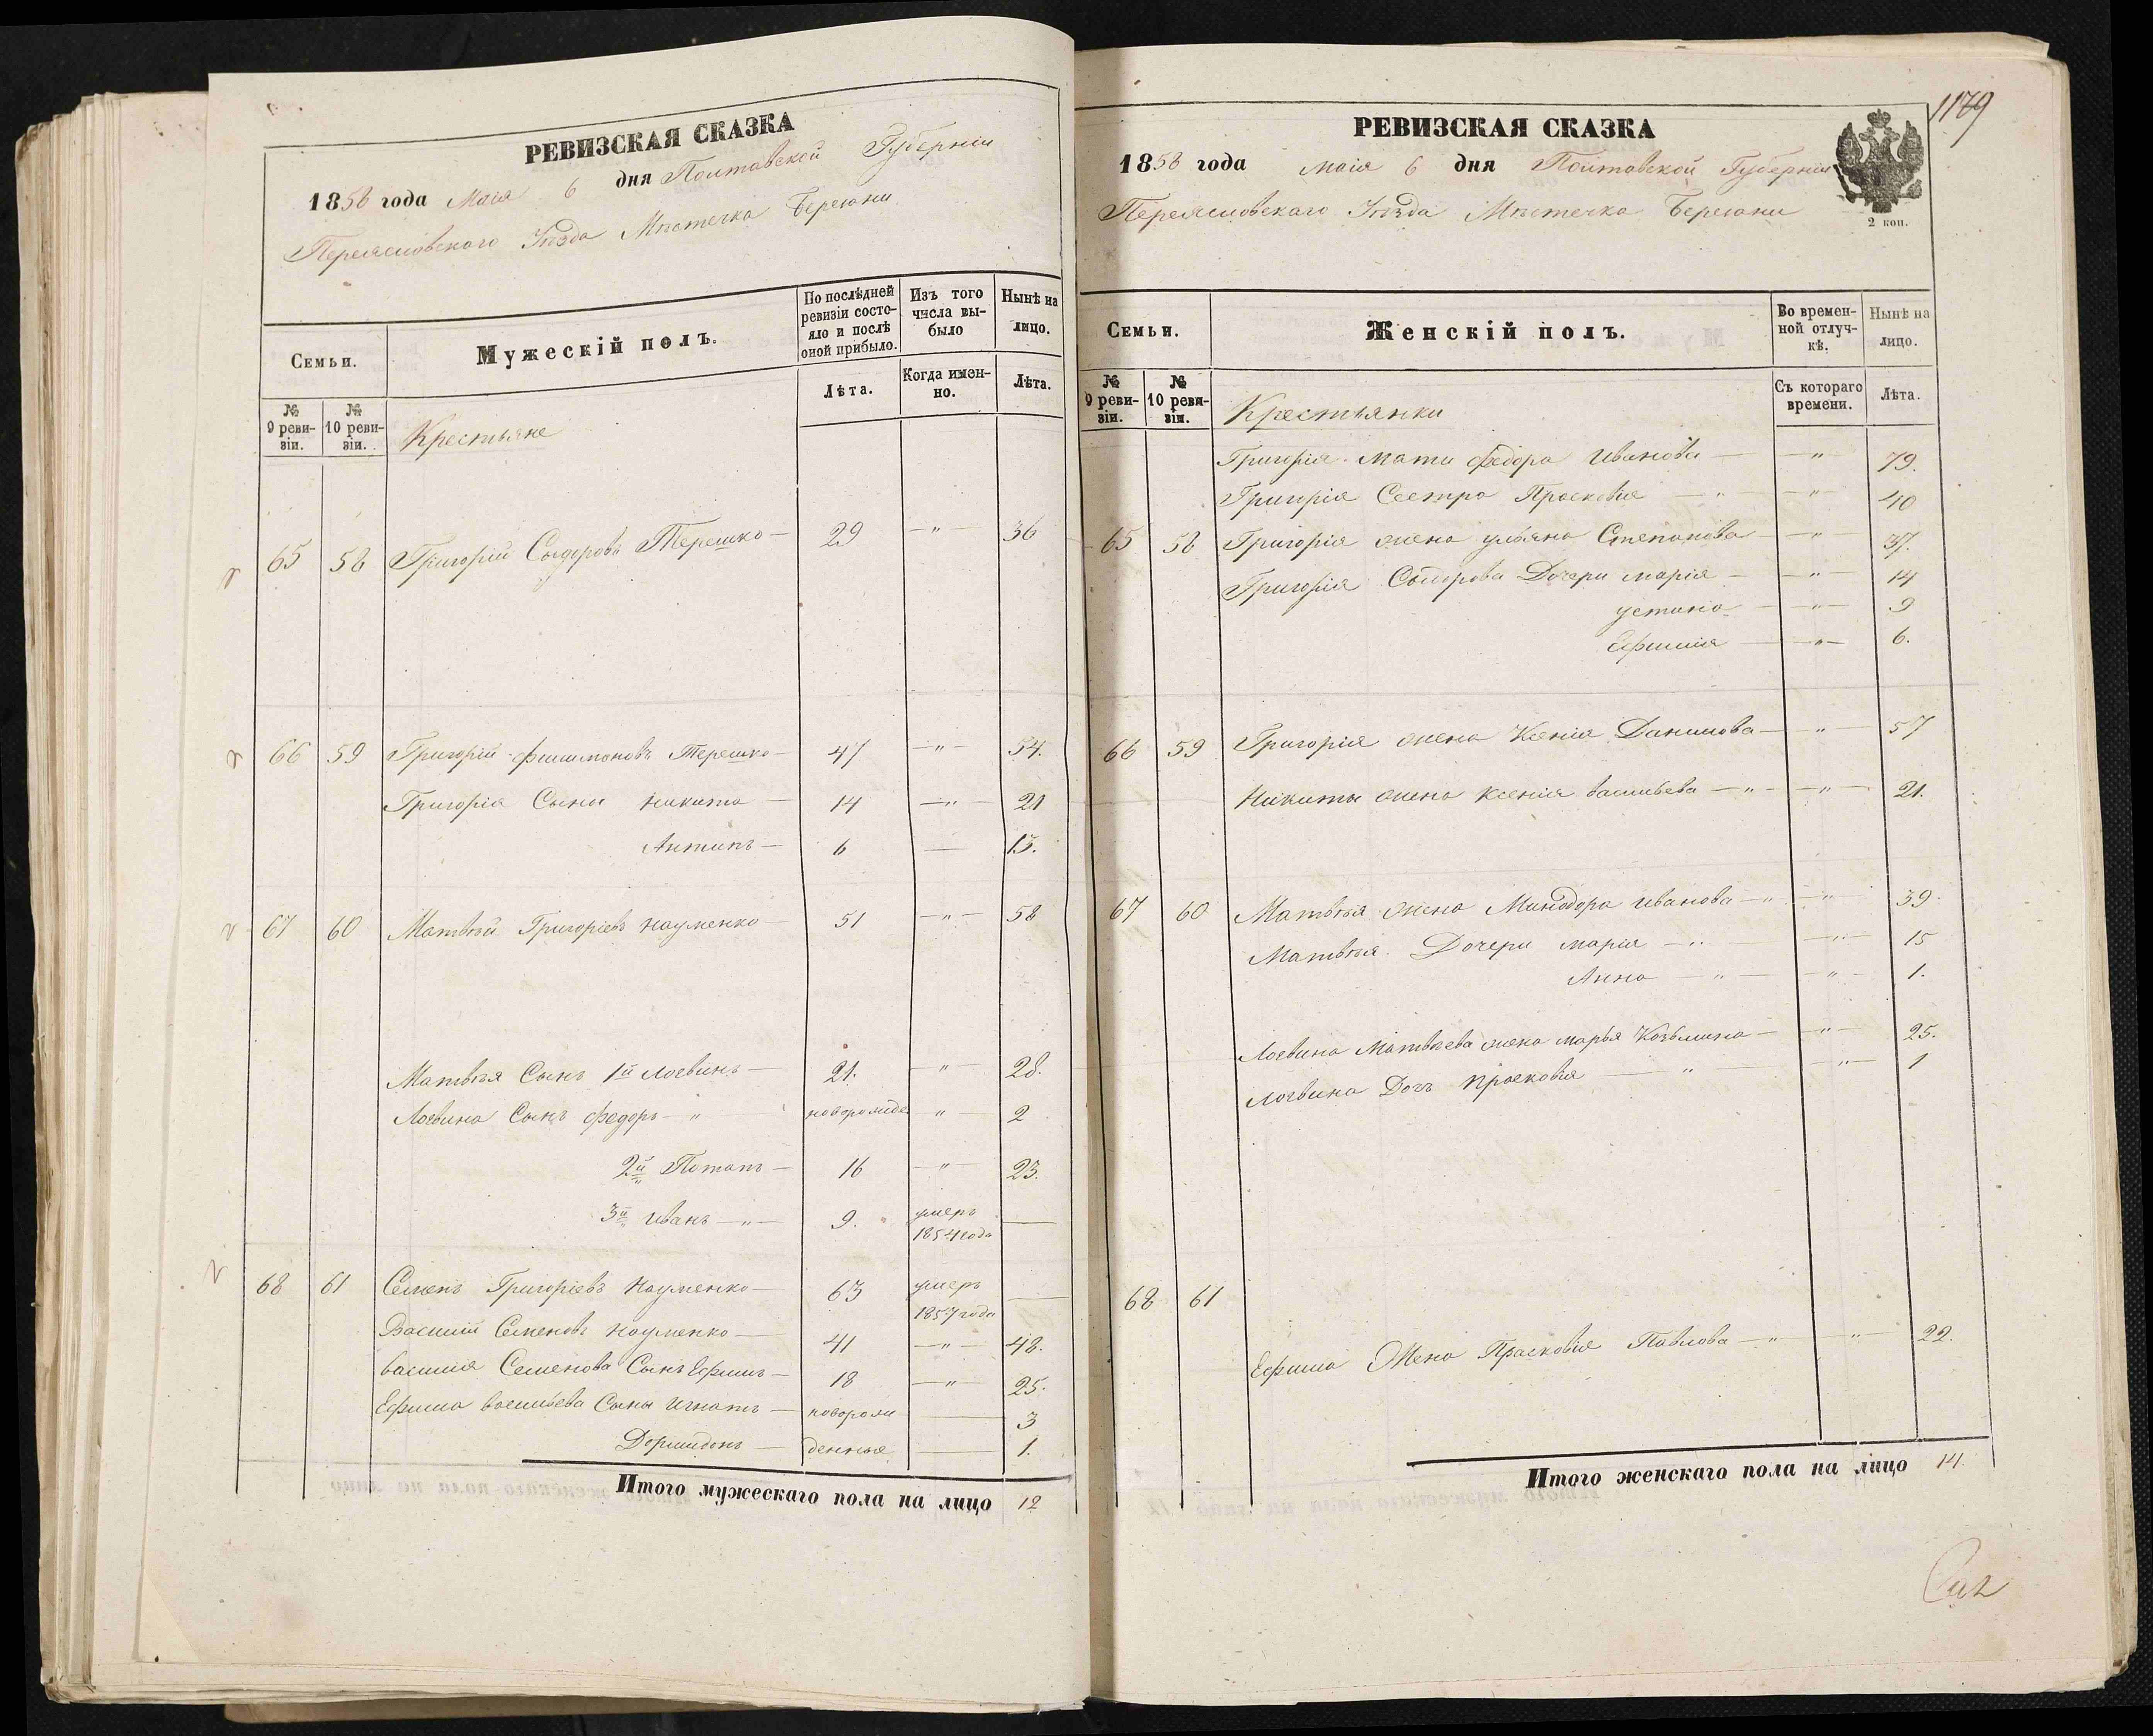 РЕВИЗСКАЯ СКАЗКА
1858 года Маія 6 дня Полтавской Губерніи
Переяславского Уезда Мѣстечка Березани
Семьи.
Мужескій полъ.
По послѣдней ревизіи состояло и послѣ оной прибыло.
Изъ того числа выбыло
Нынѣ на лицо.
Лѣта.
Когда именно.
Лѣта.
№ 9 ревизіи.
№ 10 ревизіи.
Крестьяне
65 58 Григорій Сыдоровъ Терешко — 29 — " — 36
66 59 Григорій Филимоновъ Терешко — 47 — " — 54.
Григорія Сыны Никита — 14 — " — 21
Антипъ — 6 — 13.
67 60 Матвѣй Григоріевъ Науменко 51 — " — 58
Матвѣя Сынъ 1й Логвинъ — 21. — " 28.
Логвина Сынъ Федоръ — " новорожде " 2
2й Потапъ — 16 — " — 23.
3й Иванъ — " — 9. умеръ 1854 года —
68 61 Семенъ Григоріевъ Науменко — 63 умеръ 1857 года —
Василій Семеновъ Науменко — 41 — " — 48.
Василія Семенова Сынъ Ефимъ — 18 — " — 25.
Ефима Васильева Сыны Игнатъ — новорож — 3
Дормидонъ — денные — 1.
Итого мужескаго пола на лицо 12
1179
РЕВИЗСКАЯ СКАЗКА
1858 года Маія 6 дня Полтавской Губерніи
Переяславскаго Уѣзда Мѣстечка Березани
2 коп.
Семьи.
Женскій полъ.
Во временной отлучкѣ.
Нынѣ на лицо.
№ 9 ревизіи.
№ 10 ревизіи.
Съ котораго времени.
Лѣта.
Крестьянки
Григорія Мати Федора Иванова — " — 79.
Григорія Сестра Прасковія — " — " — 40
65 58 Григорія жена Ульяна Степанова — " — 37.
Григорія Сыдорова Дочери Марія — " — 14
Устина — " — 9
Ефимія — " — 6.
66 59 Григорія жена Ксенія Данилова — " — 57
Никиты жена Ксенія Васильева — " — " — 21.
67 60 Матвѣя жена Минодора Иванова — " — " — 39.
Матвѣя Дочери Марія — " — " — 15
Анна — " — " — 1.
Логвина Матвѣева жена Марья Козьмина — " — 25.
Логвина Дочъ Прасковія — " — " — 1
68 61
Ефима Жена Прасковія Павлова — " — " — 22.
Итого женскаго пола на лицо 14.